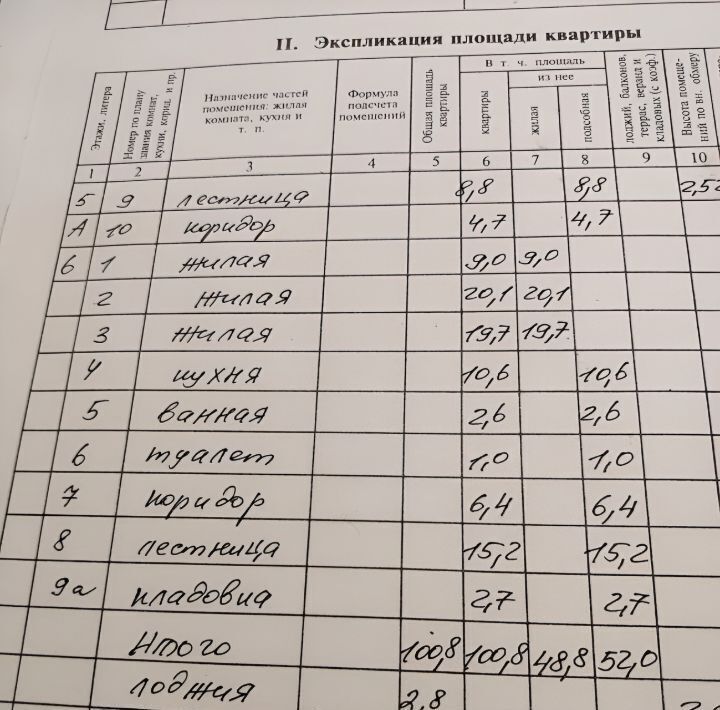 II. Экспликация площади квартиры
Этажи, литера
Номер по плану здания комнат, кухни, корид. и пр.
Назначение частей помещения: жилая комната, кухня и т. п.
Формула подсчета помещений
Общая площадь квартиры
В т. ч. площадь
квартиры
из нее
жилая
подсобная
лоджий, балконов, террас, веранд и кладовых (с коэф.)
Высота помеще- ний по вн. обмеру
1 2 3 4 5 6 7 8 9 10
5 9 лестница 8,8 8,8 2,52
А 10 коридор 4,7 4,7
6 1 жилая 9,0 9,0
2 жилая 20,1 20,1
3 жилая 19,7 19,7
4 кухня 10,6 10,6
5 ванная 2,6 2,6
6 туалет 1,0 1,0
7 коридор 6,4 6,4
8 лестница 15,2 15,2
9а кладовка 2,7 2,7
Итого 100,8 100,8 48,8 52,0
лоджия 2,8